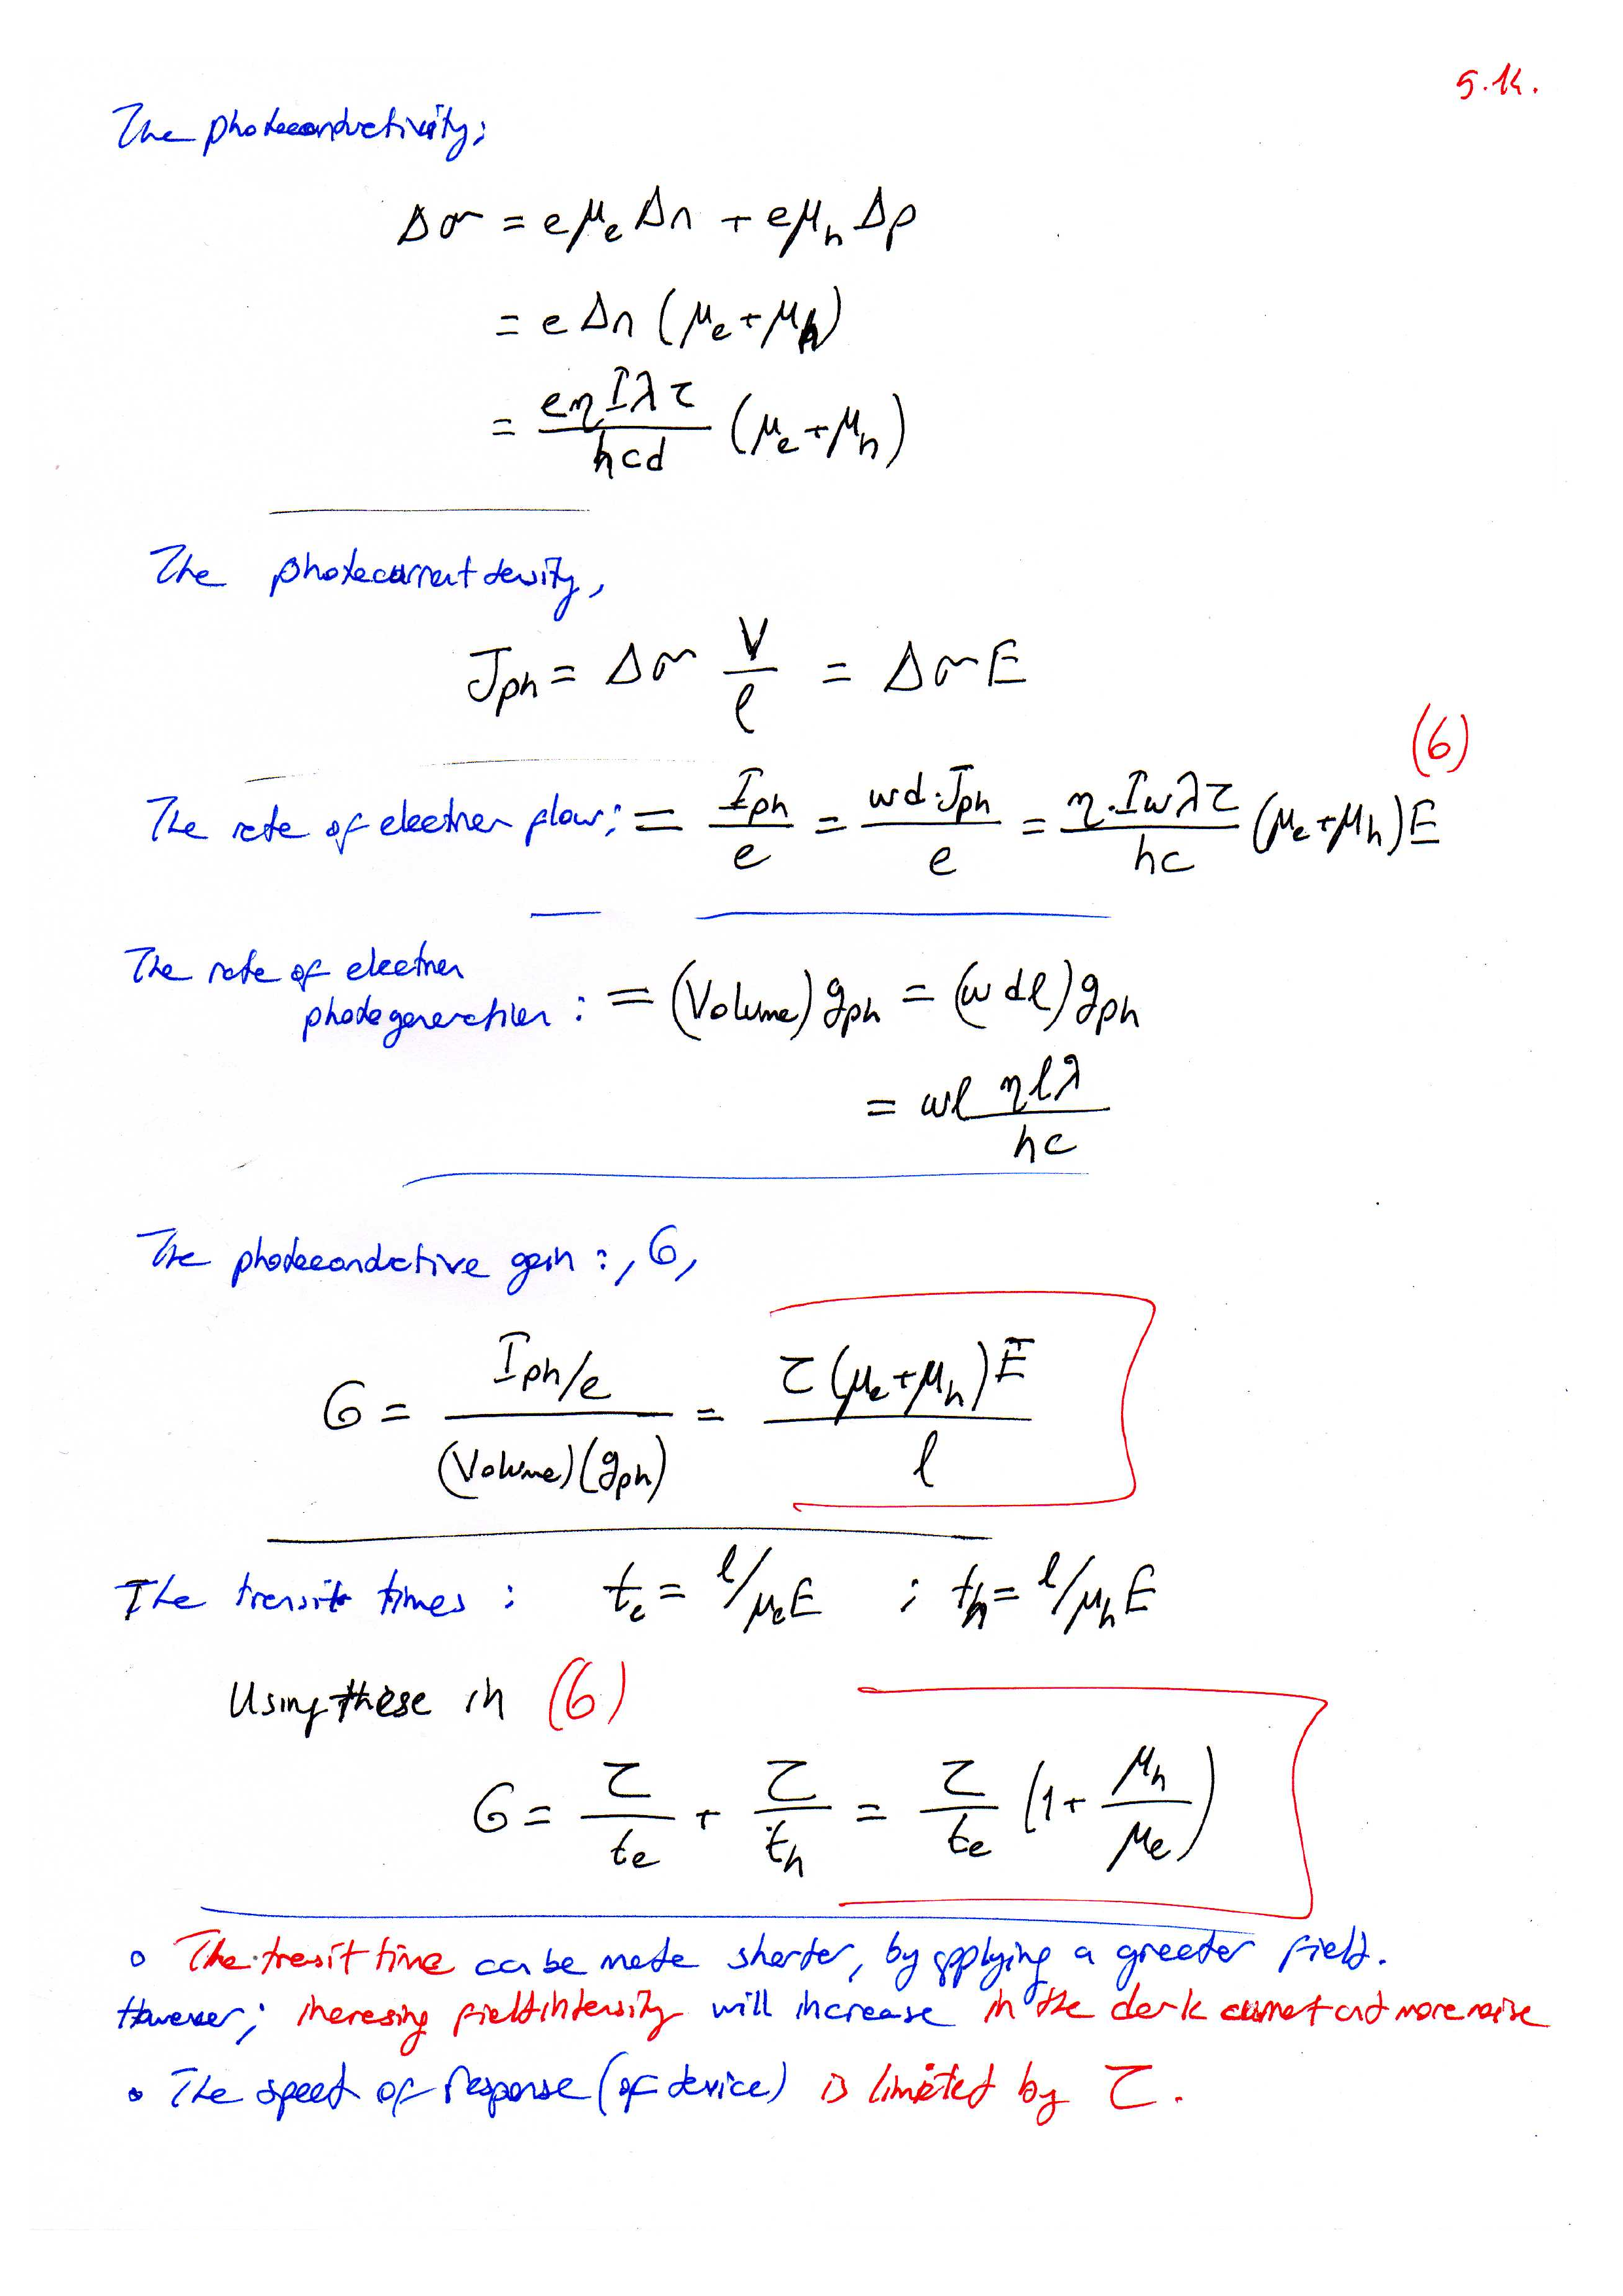 5.14.
The photoconductivity;
Δσ = eμe Δn + eμh Δp
= e Δn (μe + μh)
= eηIλτ / hcd (μe + μh)
The photocurrent density,
Jph = Δσ V/ℓ = Δσ E
(6)
The rate of electron flow; = Iph/e = wd·Jph/e = η·Iwλτ/hc (μe + μh)E
The rate of electron
photogeneration : = (Volume) gph = (wdℓ) gph
= wℓ ηIλ/hc
The photoconductive gain :, G,
G = Iph/e / (Volume)(gph) = τ(μe + μh)E / ℓ
The transit times : te = ℓ/μeE ; th = ℓ/μhE
Using these in (6)
G = τ/te + τ/th = τ/te (1 + μh/μe)
o The tresit time can be made shorter, by applying a greater field.
However; incresing field intensity will increase in the dark current and more noise
• The speed of Response (of device) is limited by τ.